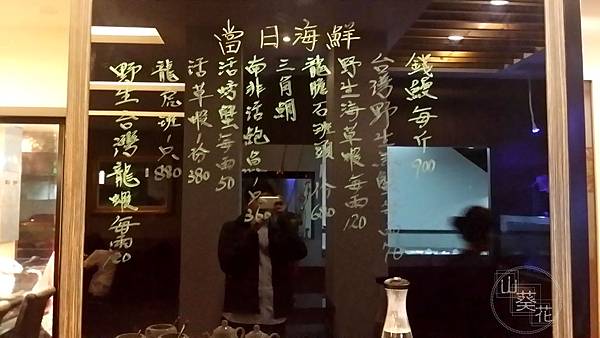 當日海鮮
錢鰻每斤900
台灣野生活蟹每兩70
野生海草蝦每兩120
龍膽石斑頭1份680
三角鯛
南非活鮑魚1只360
活螃蟹每兩50
活草蝦1份380
龍虎斑1只880
野生台灣龍蝦每兩120
山葵花